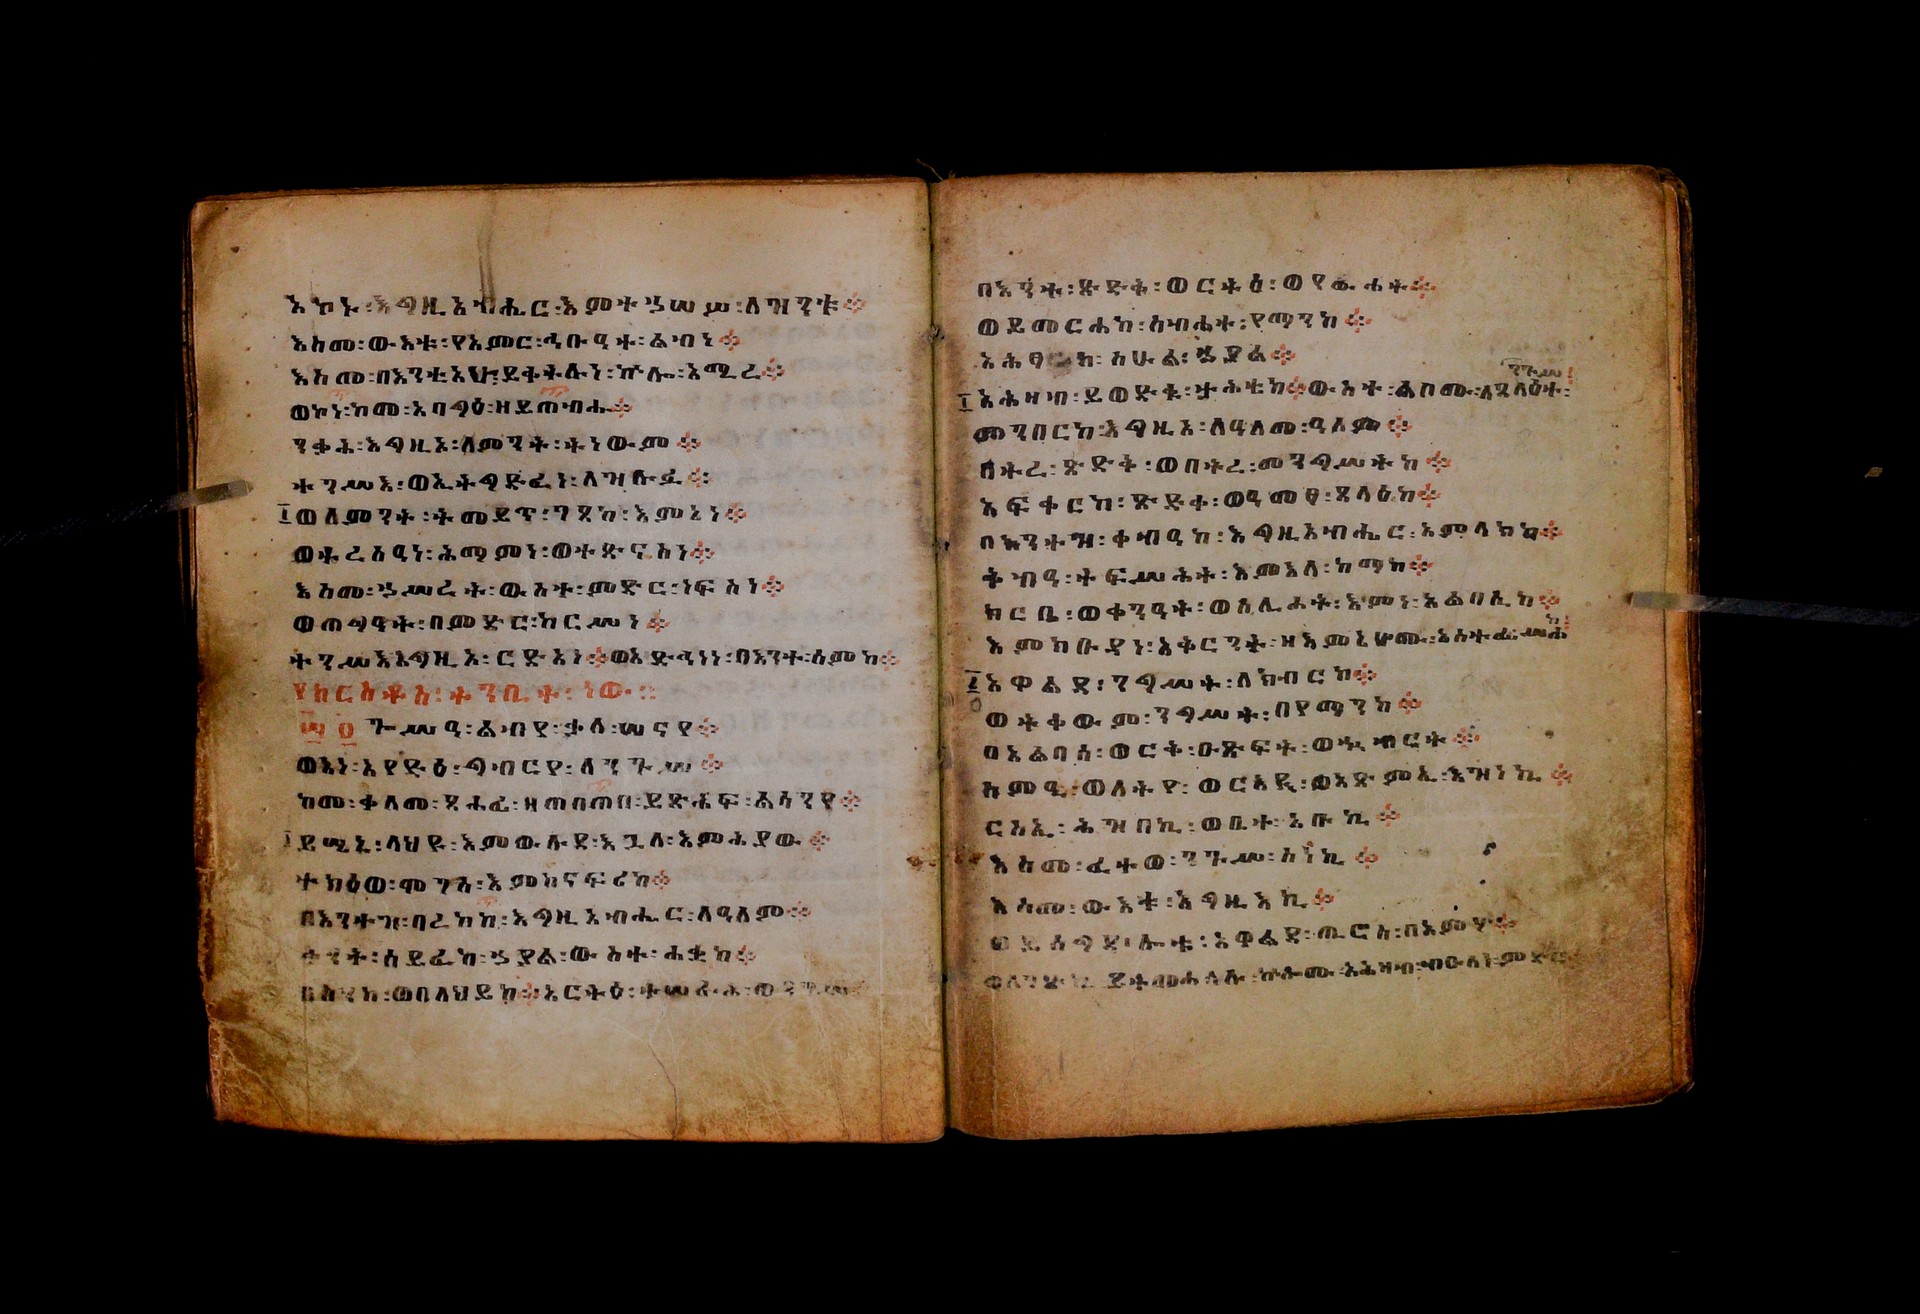 አኮኑ፡እግዚአብሔር፡እምተኃሠሦ፡ለዝንቱ።
እስመ፡ውእቱ፡የአምር፡ኅቡዓተ፡ልብነ።
እስመ፡በእንቲአከ፡ይቀትሉነ፡ኵሎ፡አሚረ።
ወኮነ፡ከመ፡አባግዕ፡ዘይጠብሑ።
ንቃህ፡እግዚኦ፡ለምንት፡ትነውም።
ተንሥእ፡ወኢትግድፈነ፡ለዝሉፉ።
ወለምንት፡ትመይጥ፡ገጸከ፡እምኔነ።
ወትረስዓነ፡ሕማምነ፡ወተጽናስነ።
እስመ፡ኃሥረት፡ውስተ፡ምድር፡ነፍስነ።
ወጠግዓት፡በምድር፡ከርሥነ።
ተንሥእ እግዚኦ፡ርድአነ።ወአድኅነነ፡በእንተ፡ስምከ።
የክርስቶስ፡ትንቢት፡ነው፡፡
ጐሥዓ፡ልብየ፡ቃለ፡ሠናየ።
ወአነ፡አየድዕ፡ግብርየ፡ለንጉሥ።
ከመ፡ቀለመ፡ጸሓፊ፡ዘጠበጠበ፡ይጽሕፍ፡ልሳንየ።
ይሤኒ፡ላህዩ፡እምውሉደ፡እጓለ፡እምሕያው።
ተክዕወ፡ሞገስ፡እምከናፍሪከ።
በእንተዝ፡ባረከከ፡እግዚአብሔር፡ለዓለም።
ቅንት፡ሰይፈከ፡ኃያል፡ውስተ፡ሐቋከ።
በሥንከ፡ወበላህይከ።አርትዕ፡ተሠራሕ፡ወንግሥ።
በእንተ፡ጽድቅ፡ወርትዕ፡ወየውሐት።
ወይመርሐከ፡ስብሐተ፡የማንከ።
አሕፃከ፡ስሁል፡ኃያል።
አሕዛብ፡ይወድቁ፡ታሕቴከ።ውስተ፡ልቦሙ፡ለጸላዕተ፡ንጉሥ፡
መንበርከ፡እግዚኦ፡ለዓለመ፡ዓለም።
በትረ፡ጽድቅ፡ወበትረ፡መንግሥትከ።
አፍቀርከ፡ጽድቀ፡ወዓመፃ፡ጸላዕከ።
በእንተዝ፡ቀብዓከ፡እግዚአብሔር፡አምላክከ።
ቅብዓ፡ትፍሥሕት፡እምእለ፡ከማከ።
ከርቤ፡ወቀንዓት፡ወሰሊሖት፡እምነ፡አልባሲከ።
እምክቡዳነ፡አቅርንት፡ዘእምኔሆሙ፡አስተፌሥሐከ፡
አዋልደ፡ንግሥት፡ለክብርከ።
ወትቀውም፡ንግሥት፡በየማንከ።
በአልባሰ፡ወርቅ፡ዑጽፍት፡ወኁብርት።
ስምዒ፡ወለትየ፡ወርእዪ፡ወአጽምኢ፡እዝነኪ።
ርስኢ፡ሕዝበኪ፡ወቤተ፡አቡኪ።
እስመ፡ፈተወ፡ንጉሥ፡ስነኪ።
እስመ፡ውእቱ፡እግዚእኪ።
ወይሰግዳ፡ሎቱ፡አዋልደ፡ጢሮስ፡በአምኃ።
ይትመሐለሉ፡ኵሎሙ፡አሕዛብ፡ብዑላነ፡ምድር።